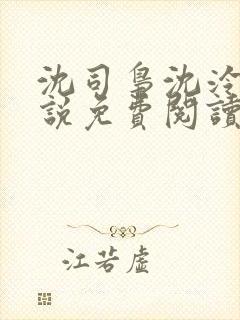 沈司梟沈泠
說免費閱讀
江若虛